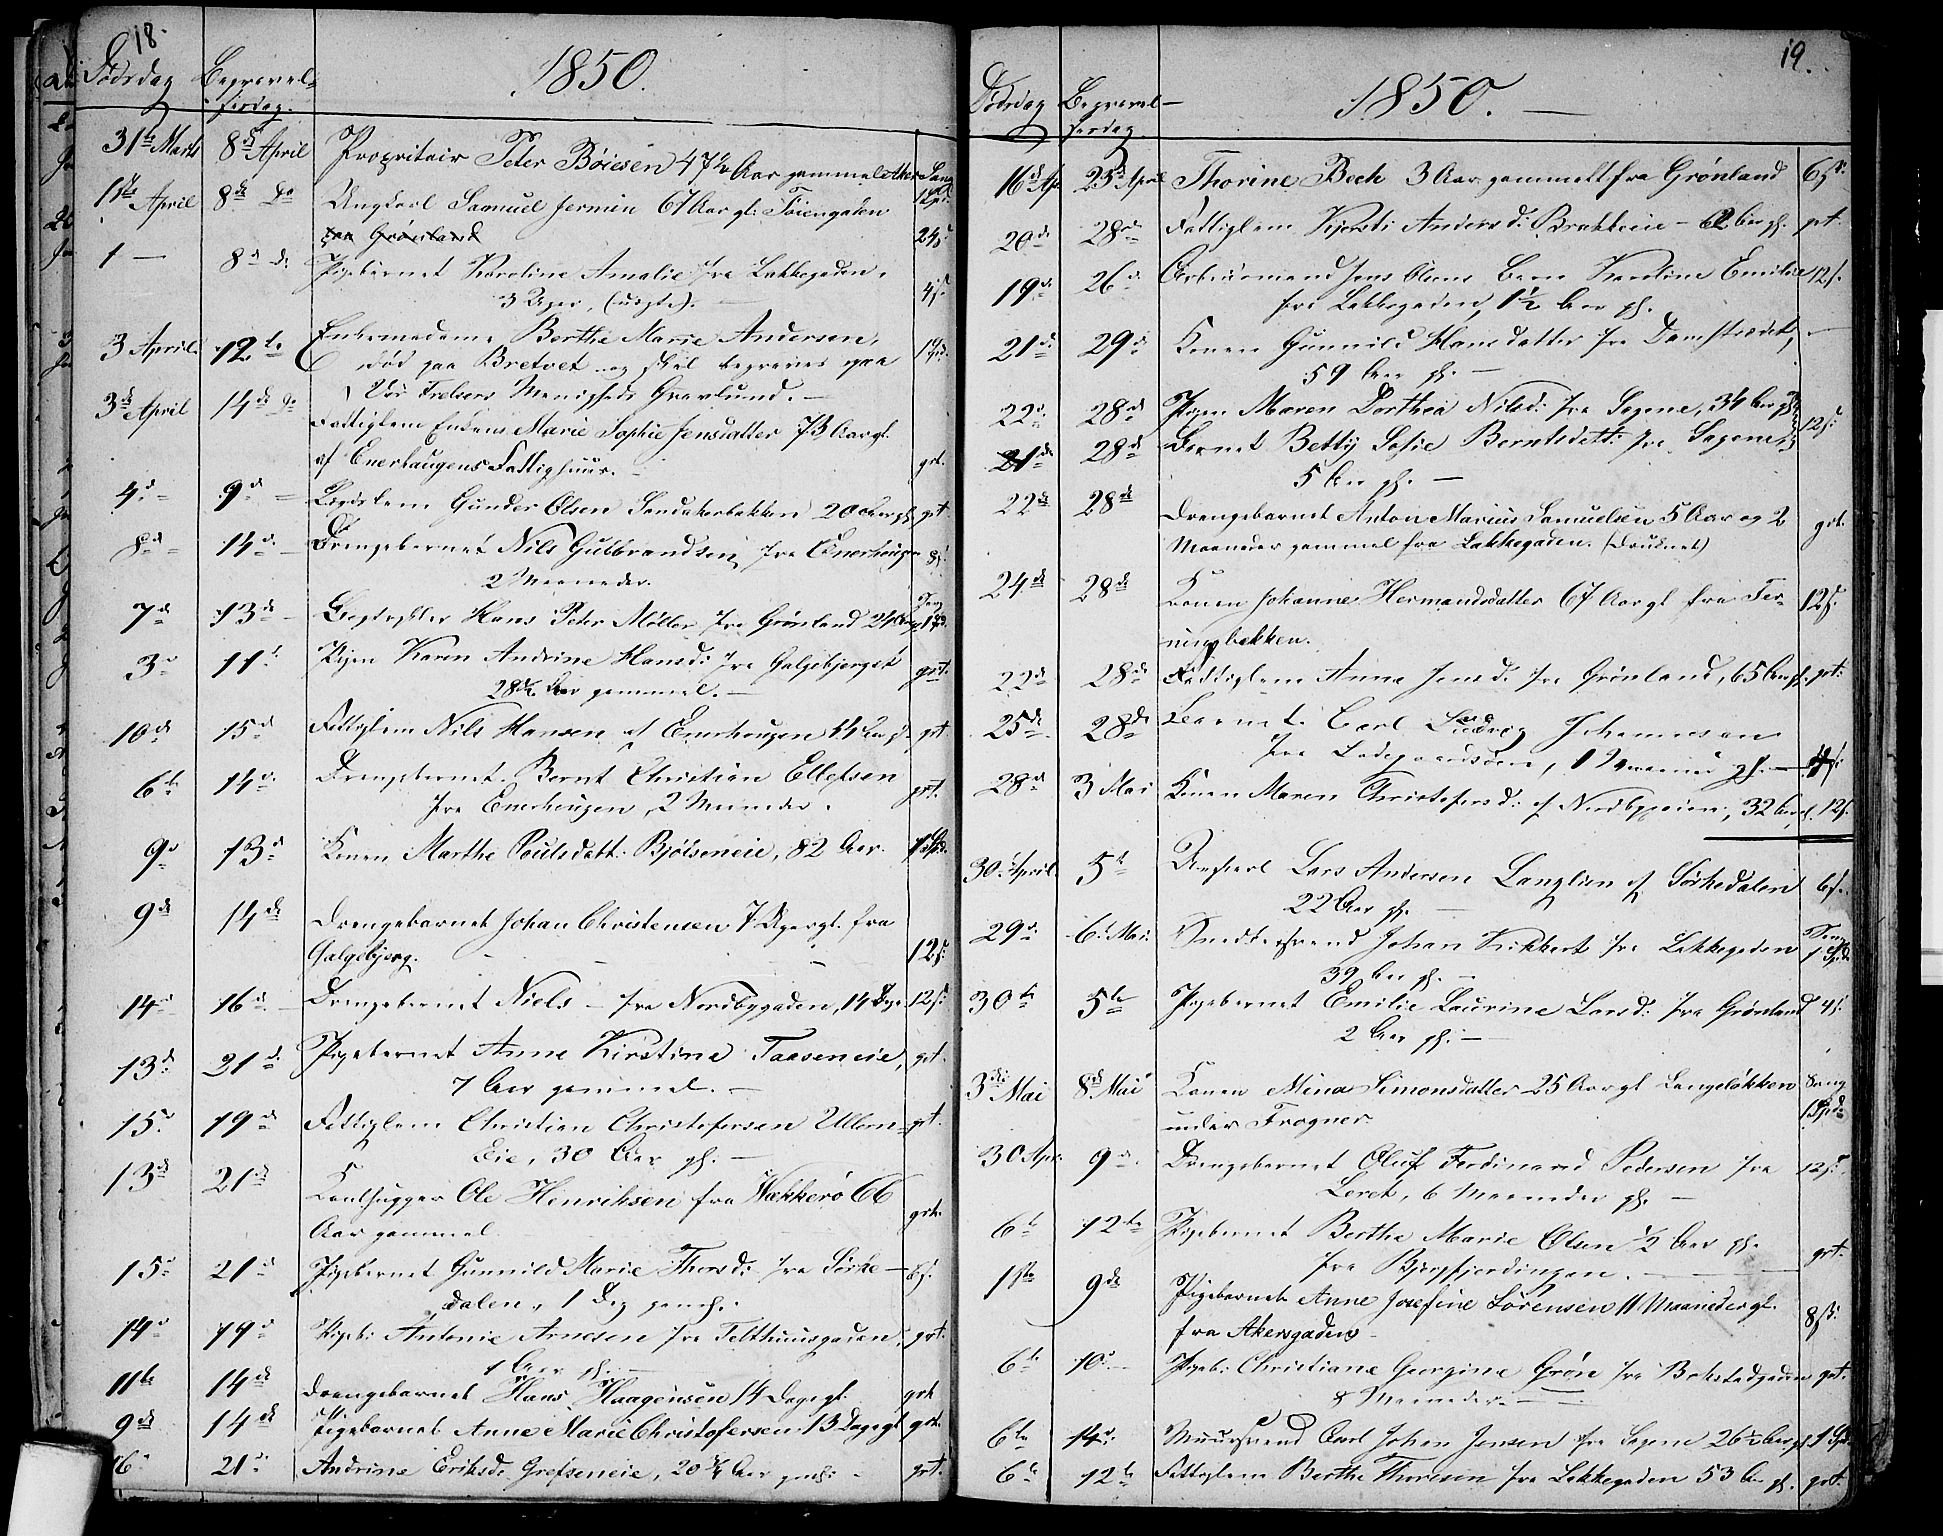 18.
Dödsdag Begravel-
sesdag.
1850.
31te Marts 8de April Propritair Peter Böiesen 47½ Aar gammel Aker Sang
1 Spd.
1ste April 8de Do Ungkarl Samuel Jermin 67 Aar gl. Töiengaden
fra Grönland 24 s.
1 — 8d do Pigebarnet Karoline Amalie fra Lakkegaden.
3 Uger, (uægte). — 4 s.
3 April. 12te Enkemadame Berthe Marie Andersen,
död paa Bretvet og skal begraves paa
Vor Frelsers Menigheds Gravlund. —
3de April 14de Do Fattiglem Enken Marie Sophie Jensdatter 73 Aar gl.
af Enerhaugens Fattighuus. — grt.
4d — 9d — Lægdslem Gunder Olsen Sandakerbakken 20 Aar gl. grt
8de — 14d. — Drengebarnet Nils Gulbrandsen fra Enerhaugen 8 s.
2 Maaneder.
7de 13de — Hans Peter Möller fra Grönland 24 Aar gl.
3d 11t Pigen Karen Andrine Hansd: fra Galgebjerget grt.
28½ Aar gammel. —
10de 15d Fattiglem Nils Hansen af Enerhaugen 44 Aar gl. grt
6te 14d. Drengebarnet Bernt Christian Ellefsen
fra Enerhaugen, 2 Maaneder. grt.
9d 13d Konen Marthe Poulsdatt: Bjölseneie, 82 Aar. 1 Spd.
9de 14de Drengebarnet Johan Christensen 7 Uger gl. fra
Galgebjerg. — — 12 s.
14d 16d. — Drengebarnet Niels — fra Nordbygaden, 14 Dage 12 s.
13d 21d. Pigebarnet Anne Kirstine Taaseneie, grt.
7 Aar gammel. —
15d 19de Fattiglem Christian Christofersen Ullern- grt.
Eie, 30 Aar gl. —
13de 21de Ole Henriksen fra Wækkerö 66
Aar gammel grt.
15d 21d Pigebarnet Gunnild Marie Thorsd: fra Sörke- 6 s.
dalen, 1 Dag gamml.
14d 19d Pigeb: Antonie Arnesen fra Telthuusgaden, grt.
1 Aar gl. —
11te 14de Drengebarnet Hans Haagensen 14 Dage gl. grt
9de 14de Pigebarnet Anne Marie Christofersen 13 Dage gl grt.
16d 21d Andrine Eriksd: Grefseneie, 20¾ Aar gml: — grt.
19.
Dödsdag Begravel-
sesdag.
1850. —
16d Ap 23d April Thorine Bech 3 Aar gammelt fra Grönland 6 s.
20de 28de Fattiglem Kjersti Andersd: Brakkeie — 62 Aar gl. grt.
19d. 26d Arbeidsmand Jens Olsens Barn Karoline Emilie 12 s.
fra Lakkegaden, 1½ Aar gl.
21d. 29d Konen Gunnild Hansdatter fra Damstrædet, —
59 Aar gl. —
22d. 28d Pigen Maren Dorthea Nilsd: fra Sagene, 34 Aar gl.
21de 28d Barnet Betty Sofie Berntsdatt: fra Sagene, 12 s.
5 Aar gl. —
22de 28de Drengebarnet Anton Marius Samuelsen 5 Aar og 2
Maaneder gammel fra Lakkegaden. (Druknet) grt.
24de 28de Konen Johanne Hermandsdatter 67 Aar gl fra Fer-
ningbakken. 12 s.
22de 28de Fattiglem Anne Jensd: fra Grönland, 65 Aar gl. grt:
25de 28de Barnet Carl Ludvig Johannesen
fra Ladegaardsöen, 1 Maaned gl. —
28d 3 Mai Konen Maren Christofersd: af Nordbygaden, 32 Aar gl. 12 s.
30. April. 5t Ungkarl Lars Andersen Langlien af Sörkedalen 6 s.
22 Aar gl. —
29d. 6t Mai: Snedkersvend Johan Kikkert fra Lakkegaden Sang
1 Spd
39 Aar gl. —
30te 5te Pigebarnet Emilie Laurine Larsd: fra Grönland 4 s.
2 Aar gl. —
3die Mai 8de Mai Konen Mina Simonsdatter 25 Aar gl Langelökken Sang
under Frogner. 1 Spd
30 Apr: 9d. Drengebarnet Oluf Ferdinand Pedersen fra 12 s.
Leret, 6 Maaneder gl. —
6te 12te Pigebarnet Berthe Marie Olsen ½ Aar gl.
fra Bjergfjerdingen. — grt.
1ste 9de Pigebarnet Anne Josefine Sörensen 11 Maaneder gl.
fra Akersgaden 8 s.
6te 10d. — Pigeb: Christiane Georgine Grön fra Bakstadgaden grt.
8 Maaneder. —
6te 14d. Muursvend Carl Johan Jensen fra Sagene 26½ Aar gl 1 Spd
6te 12te Fattiglem Berthe Thoresen fra Lakkegaden 53 Aar gl. grt.